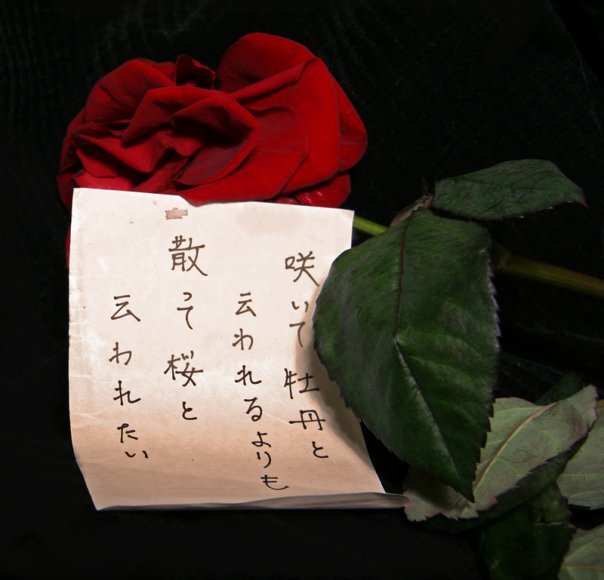 咲いて牡丹と
云われるよりも
散って桜と
云われたい